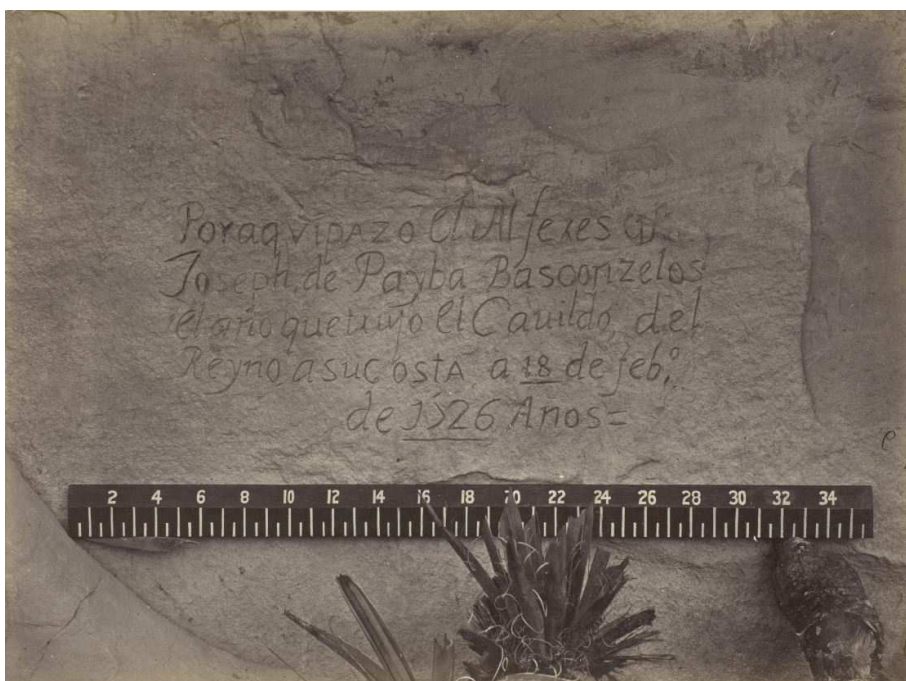 Por aqvi pazo el Alferes Dn
Joseph de Payba Basconzelos
el año que tuvo el Cauildo del
Reyno a su costa a 18 de febo
de 1526 Años=
e
2 4 6 8 10 12 14 16 18 20 22 24 26 28 30 32 34